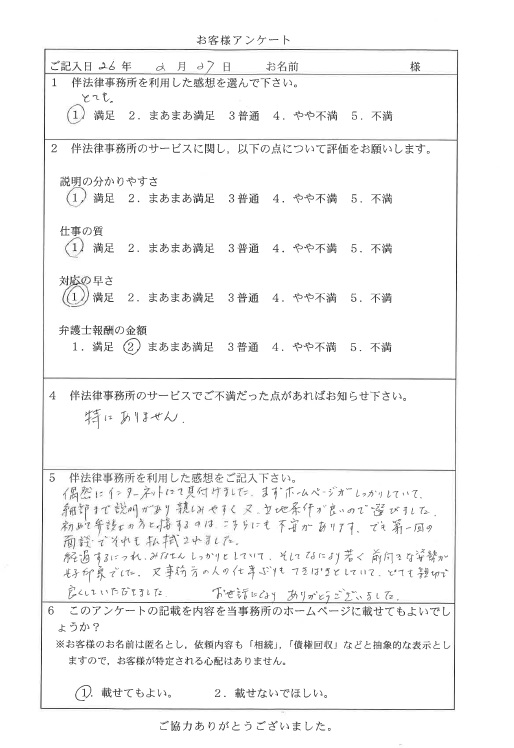 お客様アンケート
ご記入日 26 年 2 月 27 日 お名前 様
1 伴法律事務所を利用した感想を選んで下さい。
とても
1．満足 2．まあまあ満足 3 普通 4．やや不満 5．不満
2 伴法律事務所のサービスに関し，以下の点について評価をお願いします。
説明の分かりやすさ
1．満足 2．まあまあ満足 3 普通 4．やや不満 5．不満
仕事の質
1．満足 2．まあまあ満足 3 普通 4．やや不満 5．不満
対応の早さ
1．満足 2．まあまあ満足 3 普通 4．やや不満 5．不満
弁護士報酬の金額
1．満足 2．まあまあ満足 3 普通 4．やや不満 5．不満
4 伴法律事務所のサービスでご不満だった点があればお知らせ下さい。
特にありません．
5 伴法律事務所を利用した感想をご記入下さい。
偶然にインターネットにて見付けました．まずホームページがしっかりしていて、
細部まで説明があり親しみやすく又、立地条件が良いので選びました。
初めて弁護士の方と接するのは、こちらにも不安があります。でも第一回の
面談でそれも払拭されました。
経過するにつれ、みなさんしっかりとしていて、そしてなにより若く前向きな姿勢が
好印象でした。又事務方の人の仕事ぶりもてきぱきとしていて、とても親切で
良くしていただきました お世話になり ありがとうございました．
6 このアンケートの記載を内容を当事務所のホームページに載せてもよいでし
ょうか？
※お客様のお名前は匿名とし，依頼内容も「相続」，「債権回収」などと抽象的な表示とし
ますので，お客様が特定される心配はありません。
1．載せてもよい。 2．載せないでほしい。
ご協力ありがとうございました。